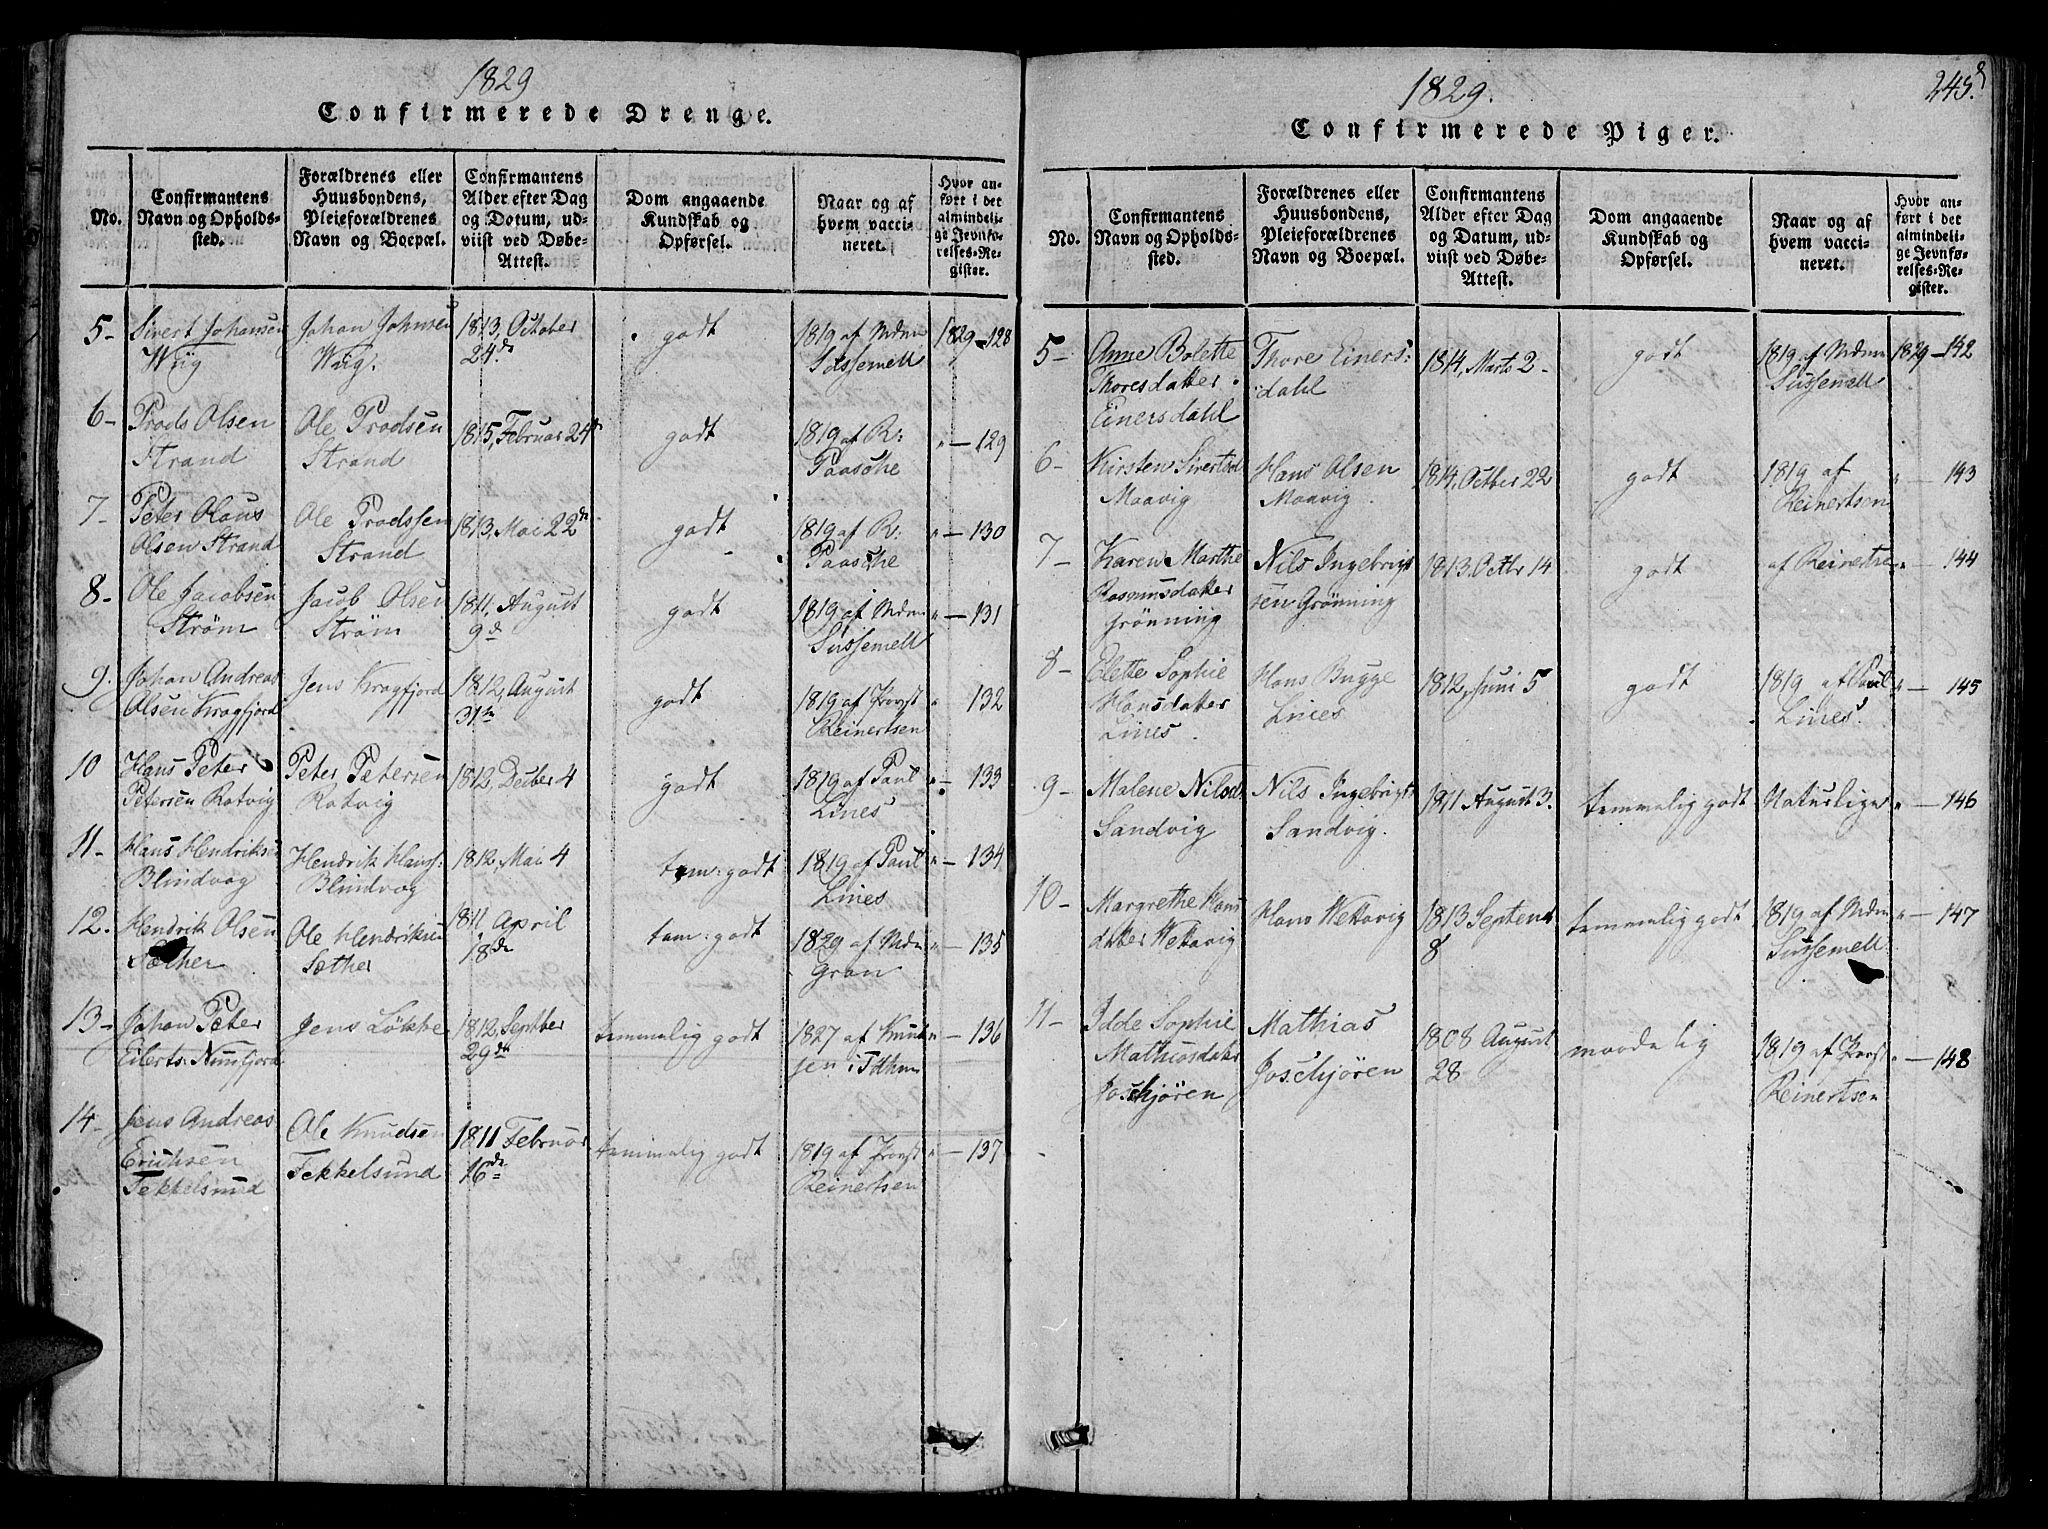 1829
Confirmerede Drenge.
No.
Confirmantens
Navn og Opholds-
sted.
Forældrenes eller
Huusbondens,
Pleieforældrenes
Navn og Boepæl.
Confirmantens
Alder efter Dag
og Datum, ud-
viist ved Døbe-
Attest.
Dom angaaende
Kundskab og
Opførsel.
Naar og af
hvem vacci-
neret.
Hvor an-
ført i det
almindeli-
ge Jevnfø-
relses-Re-
gister.
5-
Sivert Johansen
Wiig
Johan Johnsen
Wiig.
1813, October
24de
godt
1819 af Mdm
Süssemell
1829-128
6-
Prods Olsen
Strand
Ole Prodsen
Strand
1815, Februar 24
godt
1819 af R:
Paasche
" - 129
7-
Peter Olaus
Olsen Strand
Ole Prodssen
Strand
1813, Mai 22de
godt
1819 af R:
Paasche
" - 130
8-
Ole Jacobsen
Strøm
Jacob Olsen
Strøm
1811, August
9de
godt
1819 af Mdm
Sussemell
" - 131
9.
Johan Andreas
Olsen Kragfjord
Jens Kragfjord
1812, August
31te
godt
1819 af Provst
Reinertsen
" 132
10
Hans Peter
Petersen Rotvig
Peter Petersen
Rotvig
1812, Decber 4
godt
1819 af Paul
Lines
" - 133
11-
Hans Hendriksen
Blindvog
Hendrik Hans:
Blindvog
1812, Mai 4
tem: godt
1819 af Paul
Lines
" - 134
12.
Hendrik Olsen
Sæther
Ole Hendriksen
Sæther
1811 April
18de
tem: godt
1829 af Mdm
Gran
" - 135
13-
Johan Peter
Eilerts:
Jens Løkke
1812, Septber
29de
temmelig godt
1827 af Knud
sen i
" - 136
14-
Jens Andreas
Erichsen
Tekkelsund
Ole Knudsen
Tekkelsund
1811 Februar
16de
temmelig godt
1819 af Provst
Reinertsen
" - 137
1829.
245.
Confirmerede Piger.
No.
Confirmantens
Navn og Opholds-
sted.
Forældrenes eller
Huusbondens,
Pleieforældrenes
Navn og Boepæl.
Confirmantens
Alder efter Dag
og Datum, ud-
viist ved Døbe-
Attest.
Dom angaaende
Kundskab og
Opførsel.
Naar og af
hvem vacci-
neret.
Hvor an-
ført i det
almindeli-
ge Jevnfø-
relses-Re-
gister.
5-
Anne Bolette
Thoresdatter
Einersdahl
Thore Einers:
dahl
1814, Marts 2-
godt
1819 af Mdm
Sussemell
1829-142
6-
Kirsten Sivertsd
Maavig
Hans Olsen
Maavig
1814, Octber 22
godt
1819 af
Reinertsen
" - 143
7-
Karen Marthe
Rasmusdatter
Grønning
Nils Ingebrigt
sen Grønning
1813. Octbr 14
godt
af
" - 144
8-
Elette Sophie
Hansdatter
Lines
Hans Bugge
Lines
1812, Juni 5
godt
1819 af Paul
Lines
" - 145
9-
Malene Nilsd.
Sandvig
Nils Ingebrigts
Sandvig.
1811 August 3.
temmelig godt
Naturlige
" - 146
10-
Margrethe Hans
datter Wettavig
Hans Wettavig
1813 Septemb
8
temmelig godt
1819 af Mdm
Sussemell
" - 147
11-
Idde Sophie
Mathiasdatter
Joschjøren
Mathias
Joschjøren
1808 August
28
maadelig
1819 af Provst
Reinertsen
" - 148